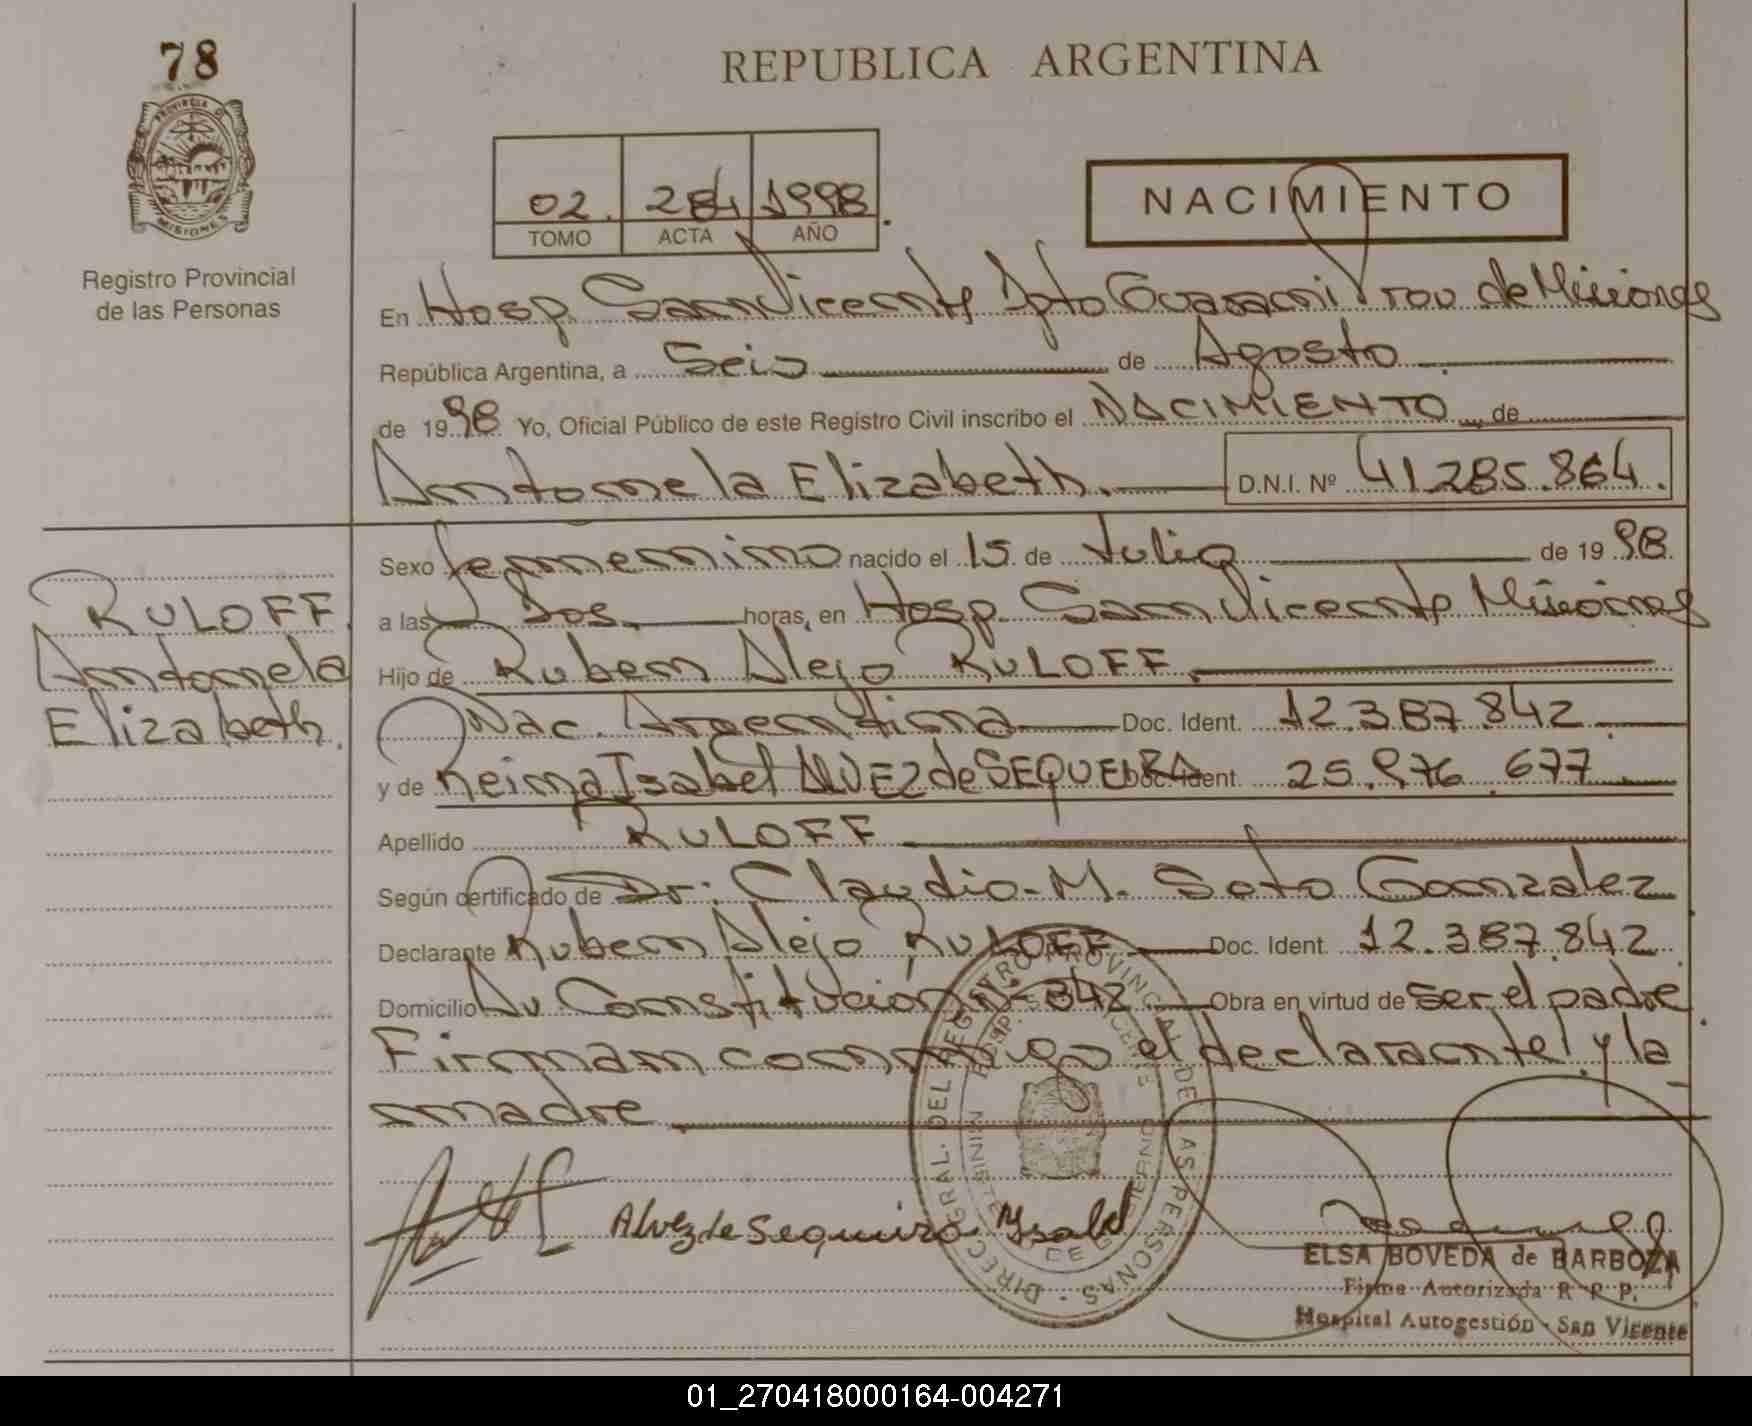 78
PROVINCIA DE
MISIONES
Registro Provincial
de las Personas
REPUBLICA ARGENTINA
02. 284 1998.
TOMO ACTA AÑO
NACIMIENTO
En Hosp. San Vicente Dpto Guarani Prov de Misiones
República Argentina, a Seis de Agosto
de 1998 Yo, Oficial Público de este Registro Civil inscribo el NACIMIENTO de
Antonela Elizabeth. D.N.I. Nº 41.285.864.
Sexo femenino nacido el 15 de Julio de 1998.
a las Dos horas, en Hosp. San Vicente Misiones
Hijo de Ruben Alejo RULOFF
Nac. Argentina Doc. Ident. 12.387.842
y de Reina Isabel ALVEZ de SEQUEIRA Doc. Ident. 25.976.677
Apellido RULOFF
Según certificado de Dr. Claudio. M. Soto Gonzalez
Declarante Ruben Alejo RULOFF Doc. Ident. 12.387.842
Domicilio Av Constitución Nº 342 Obra en virtud de ser el padre
Firman conmigo el declarante y la
madre
RULOFF
Antonela
Elizabeth.
Alvez de Sequeira Ysabel
DIREC. GRAL. DEL REGISTRO PROVINCIAL DE LAS PERSONAS
ELSA BOVEDA de BARBOZA
Firma Autorizada R. P. P.
Hospital Autogestión - San Vicente
01_270418000164-004271